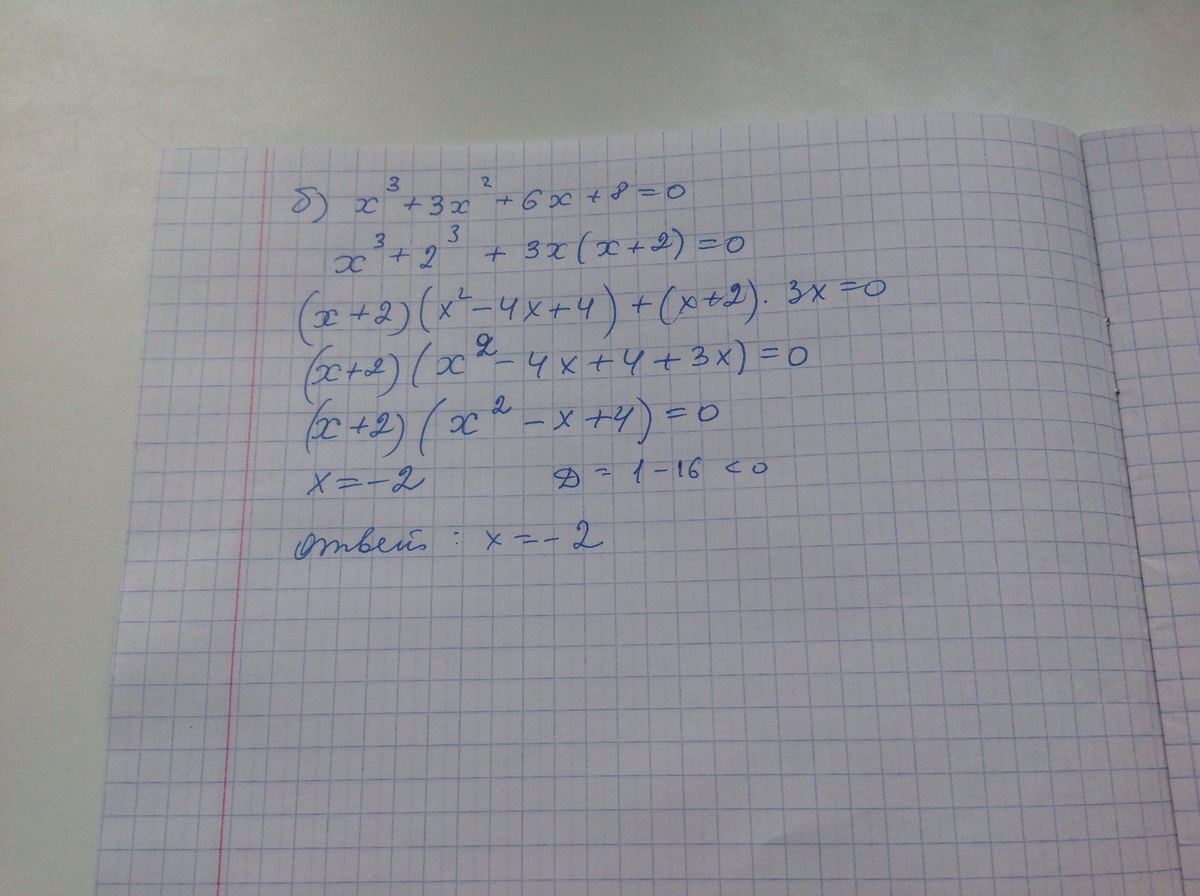 б) x³ + 3x² + 6x + 8 = 0
x³ + 2³ + 3x(x + 2) = 0
(x + 2)(x² - 4x + 4) + (x + 2) · 3x = 0
(x + 2)(x² - 4x + 4 + 3x) = 0
(x + 2)(x² - x + 4) = 0
x = -2 D = 1 - 16 < 0
ответ: x = -2